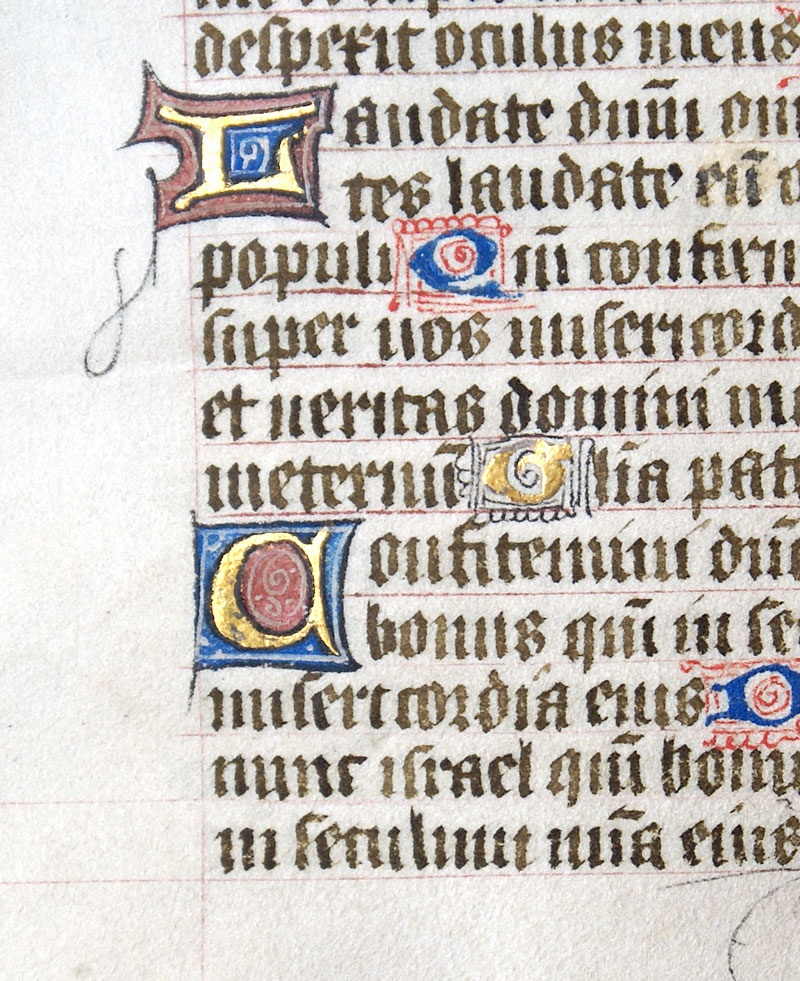 despexit oculus meus
Laudate dn̄m om
tes laudate eū o
populi Qm̄ confirm
super nos misericord
et ueritas domini m
ineternū Glia pat
Confitemini dn̄
bonus qm̄ in se
misericordia eius D
nunc israel qm̄ bonu
in seculum mīa eius